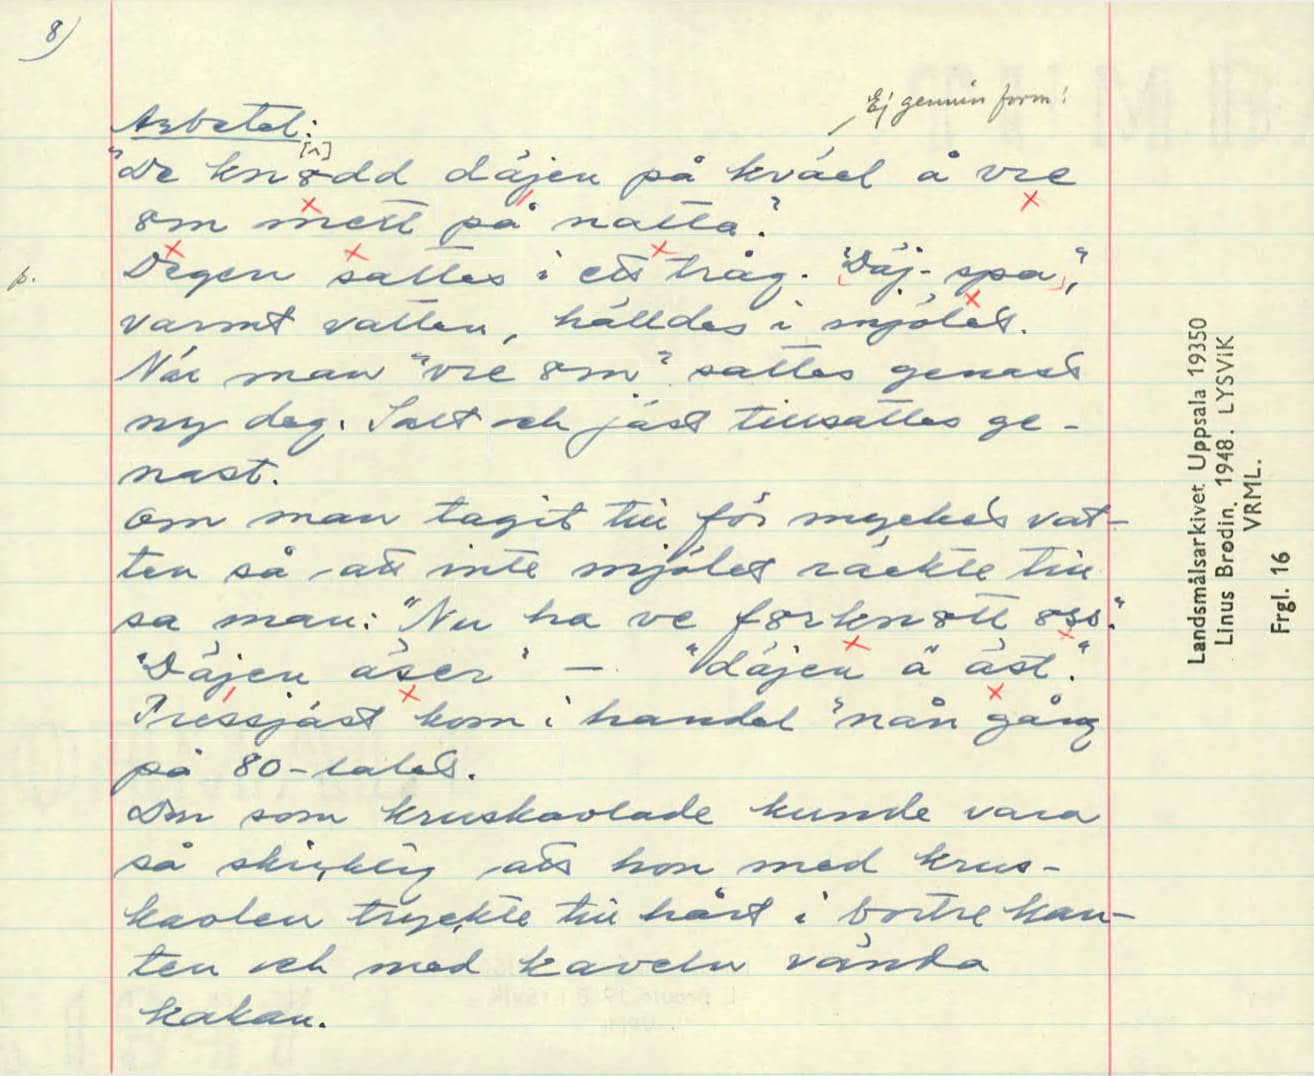 8)
Ej genuin form!
Arbetet:
[n]
"De knødd däjen på kväel å vre
øm mett på natta."
p.
Degen sattes i ett tråg. "Däj-spa",
varmt vatten, hälldes i mjölet.
När man "vre øm" sattes genast
ny deg. Salt och jäst tillsattes ge-
nast.
Om man tagit till för mycket vat-
ten så att inte mjölet räckte till
sa man: "Nu ha veførknøtt øss."
"Däjen äser" - "däjen ä äst."
Pressjäst kom i handel "nån gång
på 80-talet.
Den som kruskavlade kunde vara
så skicklig att hon med krus-
kavlen tryckte till hårt i bortre kan-
ten och med kaveln vända
kakan.
Landsmålsarkivet Uppsala 19350
Linus Brodin. 1948. LYSVIK
VRML.
Frgl. 16